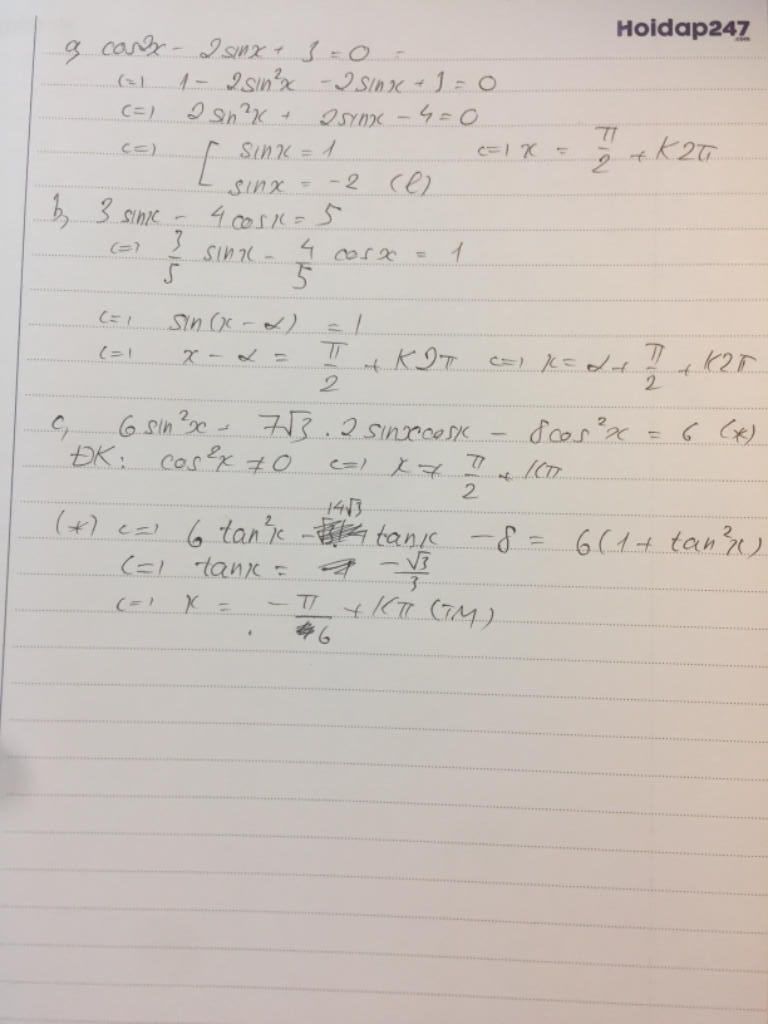 Hoidap247
.com
a, cos2x - 2sinx + 3 = 0
<=> 1 - 2sin²x - 2sinx + 3 = 0
<=> 2sin²x + 2sinx - 4 = 0
<=> [ sinx = 1 <=> x = π/2 + K2π
sinx = -2 (l)
b, 3 sinx - 4cosx = 5
<=> 3/5 sinx - 4/5 cosx = 1
<=> sin(x - α) = 1
<=> x - α = π/2 + K2π <=> x = α + π/2 + K2π
c, 6 sin²x - 7√3 . 2 sinxcosx - 8cos²x = 6 (*)
ĐK: cos²x ≠ 0 <=> x ≠ π/2 + Kπ
(*) <=> 6 tan²x - 14√3 tanx - 8 = 6(1 + tan²x)
<=> tanx = -√3/3
<=> x = -π/6 + Kπ (TM)